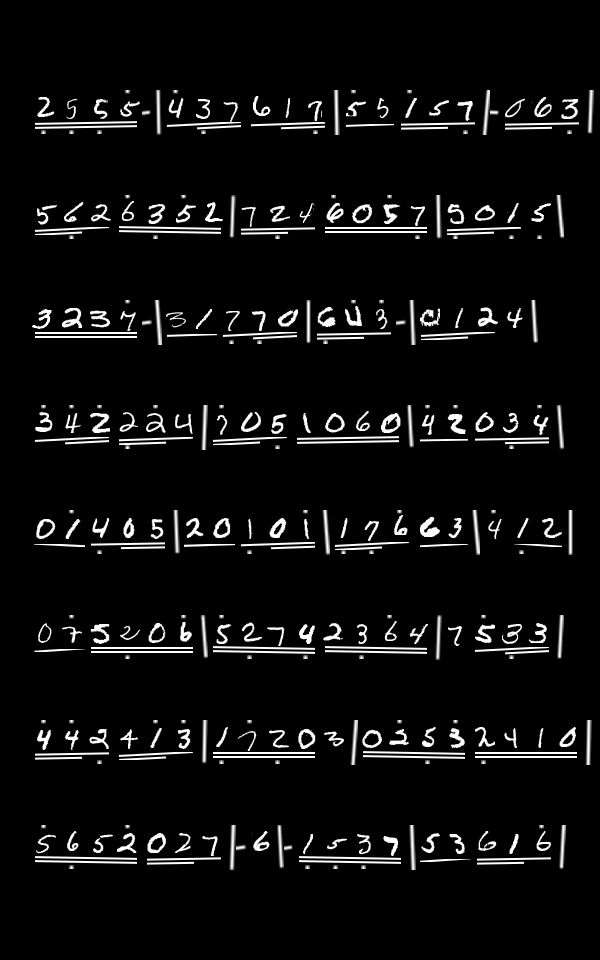 2555-|437617|55157|-063
5626352|7246057|5015
3237-|31770|643-|0124
342224|7051060|42034
01405|20101|17663|412
075206|52742364|7533
442413|17203|02532410
5652027|-6|-1537|53616